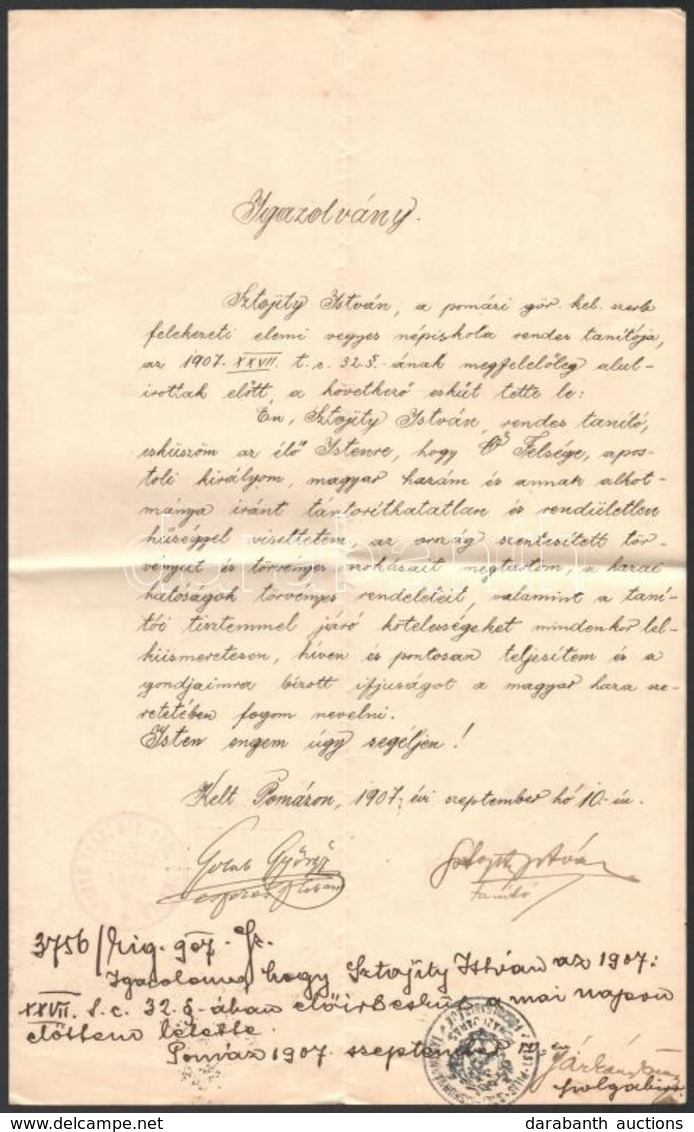 Igazolvány.
Sztojity István, a pomázi gör. kel. szerb
felekezeti elemi vegyes népiskola rendes tanítója,
az 1907. XXVII. t. c. 32. §.-ának megfelelőleg alul-
irottak előtt, a következő esküt tette le:
Én, Sztojity István, rendes tanító,
esküszöm az élő Istenre, hogy Ő Felsége, apos-
toli királyom, magyar hazám és annak alkot-
mánya iránt tántoríthatatlan és rendületlen
hűséggel viseltetem, az ország szentesített tör-
vényeit és törvényes szokásait megtartom, a hazai
hatóságok törvényes rendeleteit, valamint a taní-
tói tisztemmel járó kötelességeket mindenkor lel-
kiismeretesen, híven és pontosan teljesítem és a
gondjaimra bízott ifjuságot a magyar haza sze-
retetében fogom nevelni.
Isten engem úgy segéljen!
Kelt Pomázon, 1907. évi szeptember hó 10-én.
Golub György
Sztojity István
tanító
3756/kig. 907.
Igazolom, hogy Sztojity István az 1907:
XXVII. t. c. 32. §-ában előirt esküt a mai napon
előttem letette.
Pomáz 1907. szeptember
szolgabiró
darabanth
www.darabanth-auctions.com
darabanth auctions